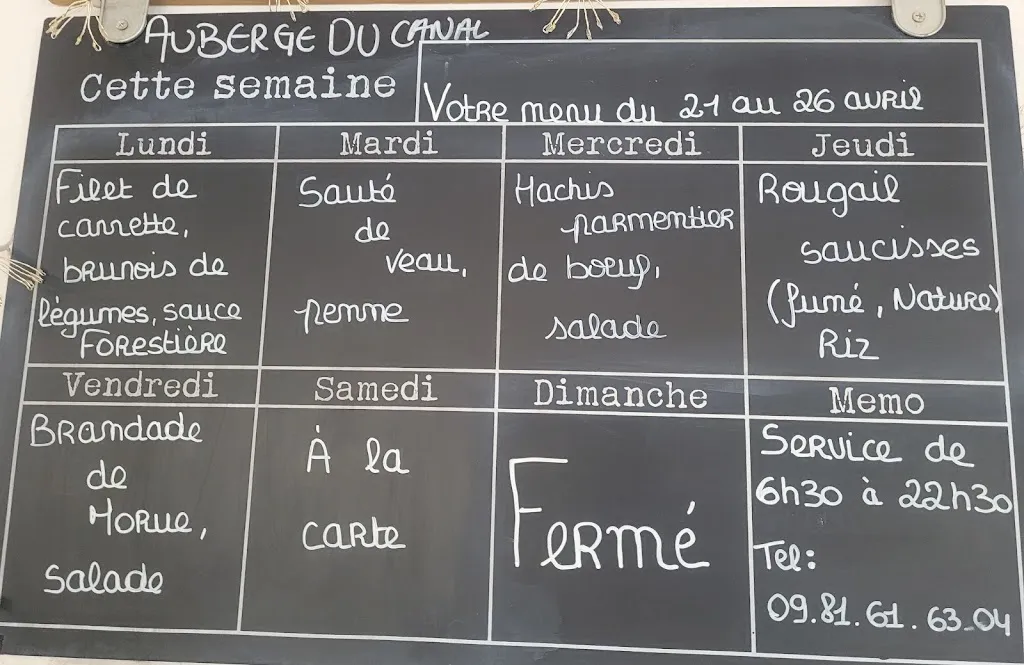 AUBERGE DU CANAL
Cette semaine
Votre menu du 21 au 26 avril
Lundi
Filet de
canette,
brunois de
légumes, sauce
Forestière
Mardi
Sauté
de
veau,
penne
Mercredi
Hachis
parmentier
de boeuf,
salade
Jeudi
Rougail
saucisses
(fumé, Nature)
Riz
Vendredi
Brandade
de
Morue,
salade
Samedi
À la
carte
Dimanche
Fermé
Memo
Service de
6h30 à 22h30
Tel:
09.81.61.63.04